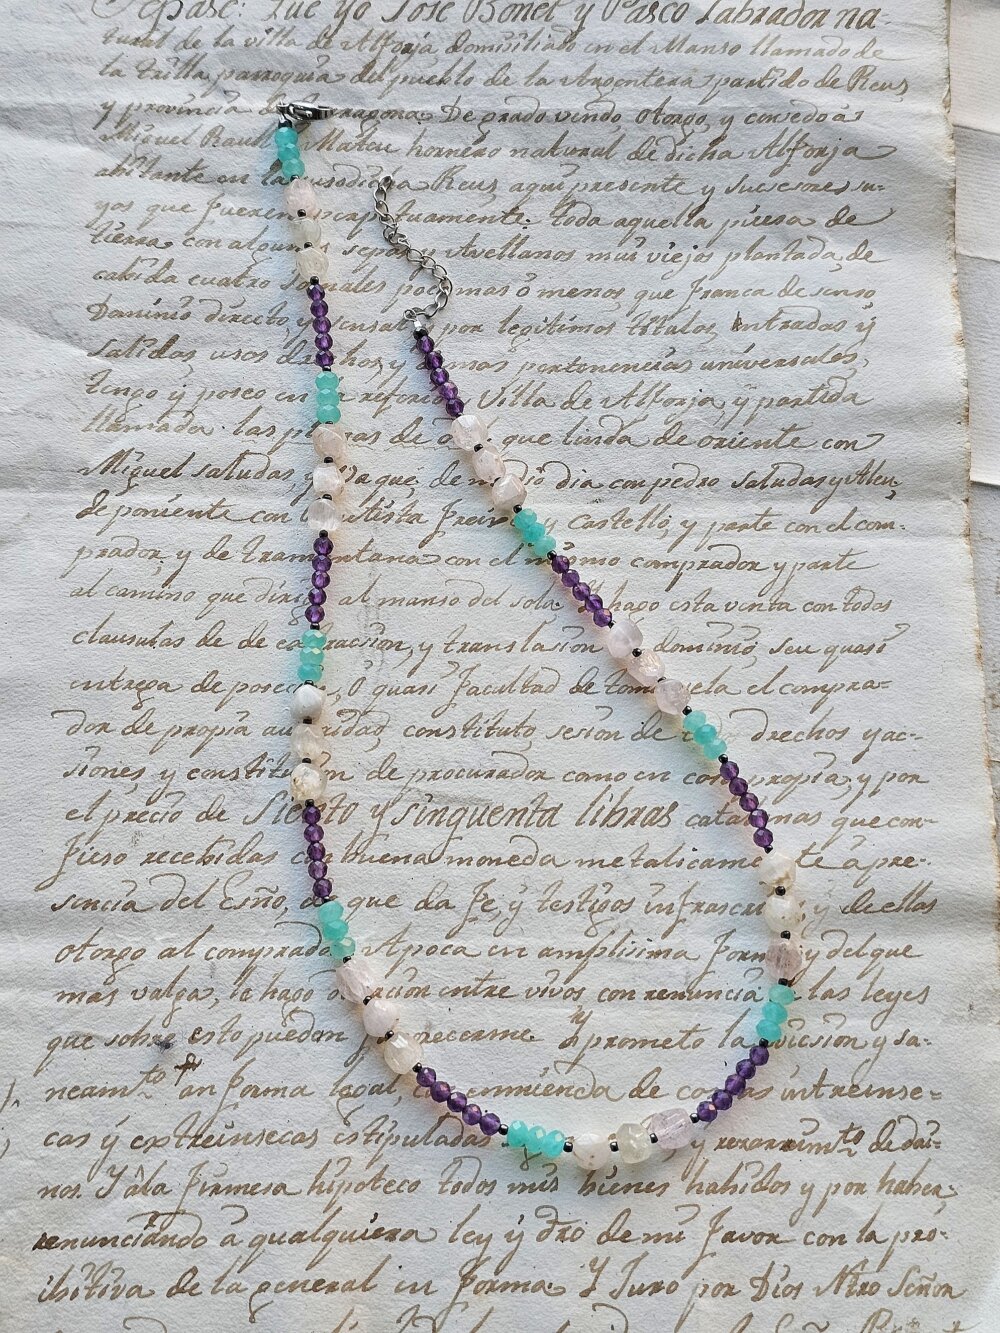 Sepase: Que yo Jose Bonet y Pasco Labrador na-
tural de la villa de Alforja domisiliado en el Manso llamado de
la trilla parroquia del pueblo de la Argentera partido de Reus
y provincia de Tarragona. De grado vendo otorgo, y consedo a
Miguel Mateu hornero natural de dicha Alforja
abitante en la Reus aqui presente y sucsores su-
yos que fueren perpetuamente: toda aquella piesa de
tierra con algunos sepas y Avellanos mui viejos plantada, de
cabida cuatro jornales poc mas ó menos que franca de senso
Dominio directo y por legitimos titulos, intradas y
salidas usos drechos, y pertenencias universales,
tengo y poseo en referida Villa de Alforja, y partida
llamada las de que linda de oriente con
Miguel saludas de medio dia con pedro saludas y Aleu,
de poniente con y Castelló, y parte con el com-
prador y de tramontana con el mismo comprador y parte
al camino que dirige al manso del sola. Y hago esta venta con todos
clausulas de de y translasion dominio seu quasi
entrega de posecion, ó quasi facultad de tomarsela el compra-
dor de propia autoridad, constituto sesion de drechos y ac-
siones y constitusion de procurador como en cosa propia, y por
el précio de Siento y sinquenta libras catalanas que con-
fieso recebidas con buena moneda metalicamente á pre-
sencia del Esño, de que da fe, y testigos infrascritos y de ellas
otorgo al comprador Apoca en amplisima forma y del que
mas valga, le hago donacion entre vivos con renuncia las leyes
que sobre esto puedan favorecerme. Y prometo la eviccion y sa-
neamto en forma legal, enmienda de costas intrense-
cas y extreinsecas estipuladas y de dai-
nos. Y á la firmesa hipoteco todos mis bienes habidos y por haber,
renunciando á qualquiera ley y dro de mi favor con la pro-
ibitiva de la general en forma. Y Juro por Dios Ntro Señor